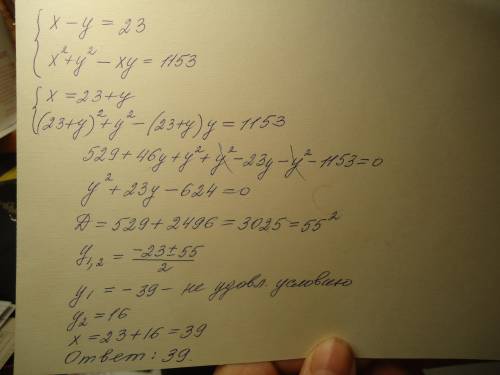 x - y = 23
x² + y² - xy = 1153
x = 23 + y
(23+y)² + y² - (23+y)y = 1153
529 + 46y + y² + y² - 23y - y² - 1153 = 0
y² + 23y - 624 = 0
D = 529 + 2496 = 3025 = 55²
y₁,₂ = (-23 ± 55)/2
y₁ = -39 - не удовл. условию
y₂ = 16
x = 23 + 16 = 39
Ответ: 39.